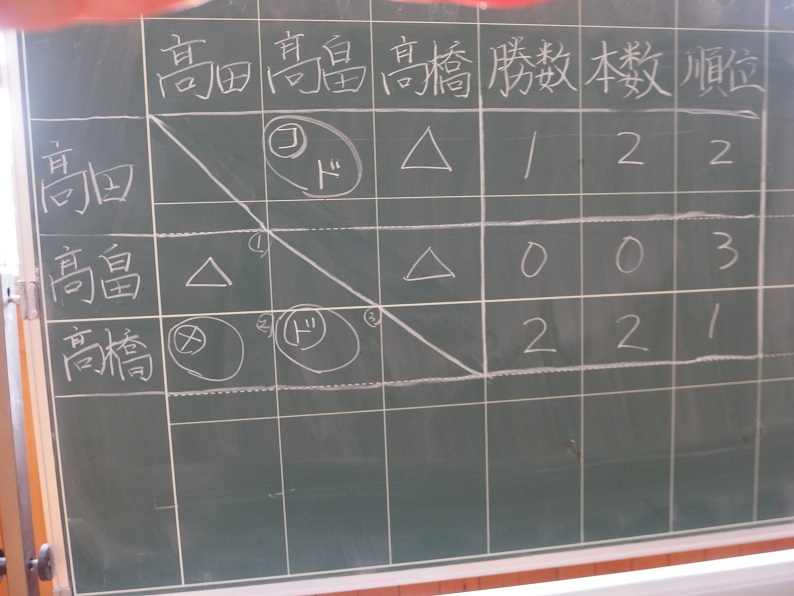 高田 高畠 高橋 勝数 本数 順位
高田 コ ド △ 1 2 2
高畠 △ ① △ 0 0 3
高橋 メ ② ド ③ 2 2 1